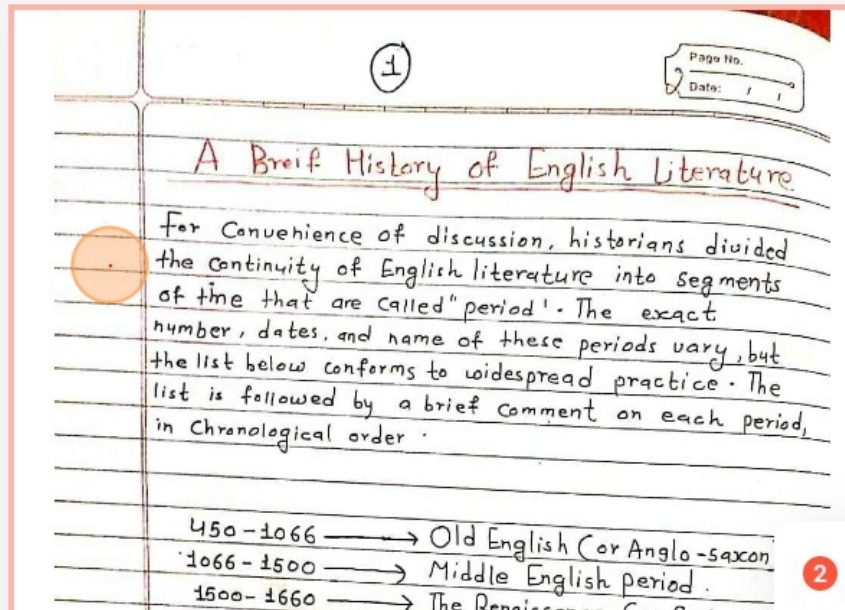 1
Page No.
2
Date: / /
A Breif History of English Literature
For Convenience of discussion, historians divided
the continuity of English literature into segments
of time that are called "period'. The exact
number, dates, and name of these periods vary, but
the list below conforms to widespread practice. The
list is followed by a brief comment on each period,
in Chronological order.
450-1066 → Old English (or Anglo-saxon
1066-1500 → Middle English period.
1500-1660 → The Renaissance
2